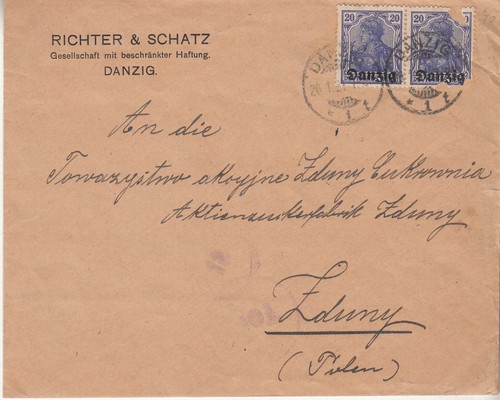 RICHTER & SCHATZ
Gesellschaft mit beschränkter Haftung.
DANZIG.
20 20 20
Danzig Danzig
DANZIG
* 1 t
DANZIG
* 1 t
An die
Towazystwo akcyjne Zduny Cukrownia
Aktienzuckerfabrik Zduny
Zduny
(Polen)